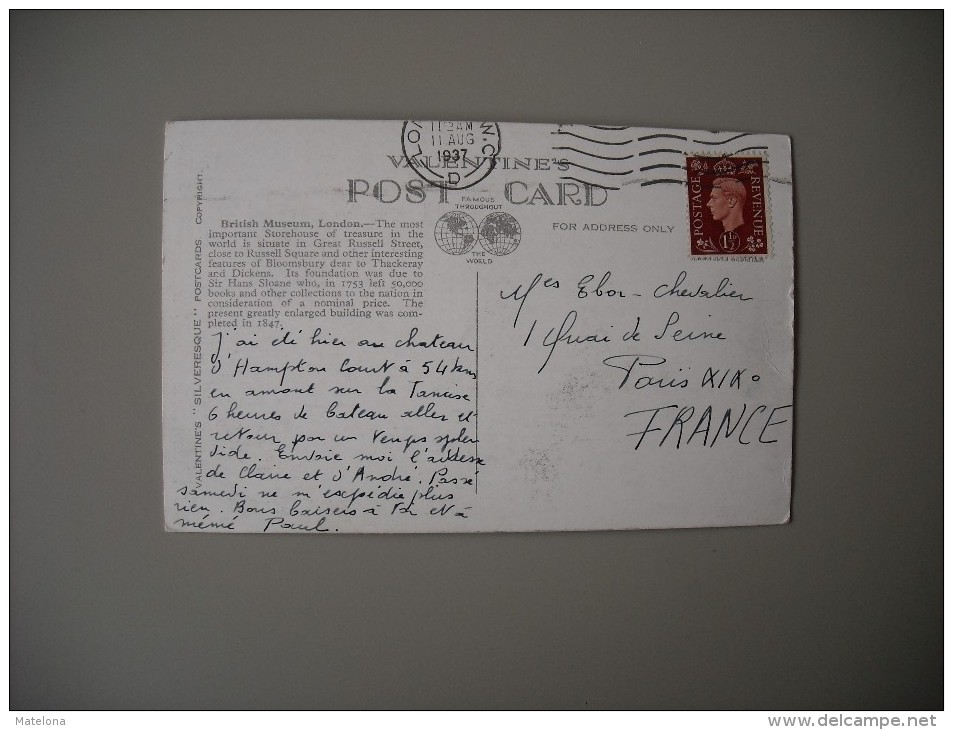 LON W.C.
11 2 AM
11 AUG
1937
D
VALENTINE'S
POST CARD
FAMOUS
THROUGHOUT
THE
WORLD
FOR ADDRESS ONLY
POSTAGE
REVENUE
1½D
VALENTINE'S "SILVERESQUE" POSTCARDS COPYRIGHT.
British Museum, London.—The most
important Storehouse of treasure in the
world is situate in Great Russell Street,
close to Russell Square and other interesting
features of Bloomsbury dear to Thackeray
and Dickens. Its foundation was due to
Sir Hans Sloane who, in 1753 left 50,000
books and other collections to the nation in
consideration of a nominal price. The
present greatly enlarged building was com-
pleted in 1847.
J'ai été hier au chateau
d'Hampton Court à 54 kms
en amont sur la Tamise
6 heures de bateau aller et
retour par un temps splen
dide. Envoie moi l'adresse
de Claire et d'André. Passé
samedi ne m'expédie plus
rien. Bons baisers à toi et à
mémé Paul.
Mes Ebor-Chevalier
1 Quai de Seine
Paris XIXo
FRANCE
Matelona
www.delcampe.net